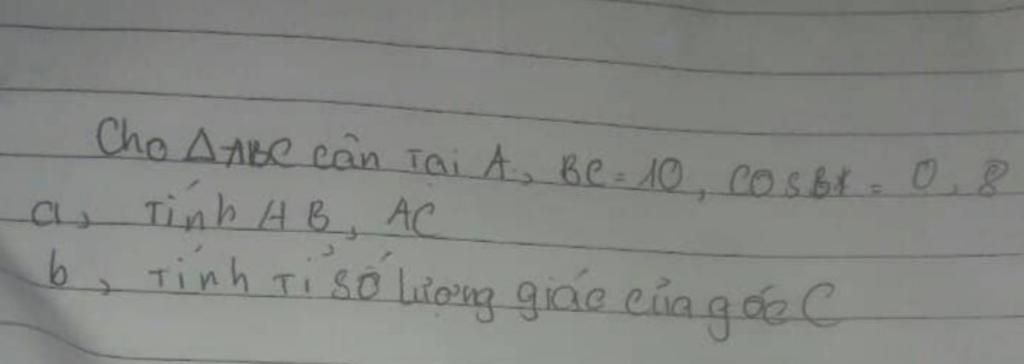 Cho ΔABC cân tại A, BC = 10, cosB = 0,8
a, Tính AB, AC
b, Tính tỉ số lượng giác của góc C